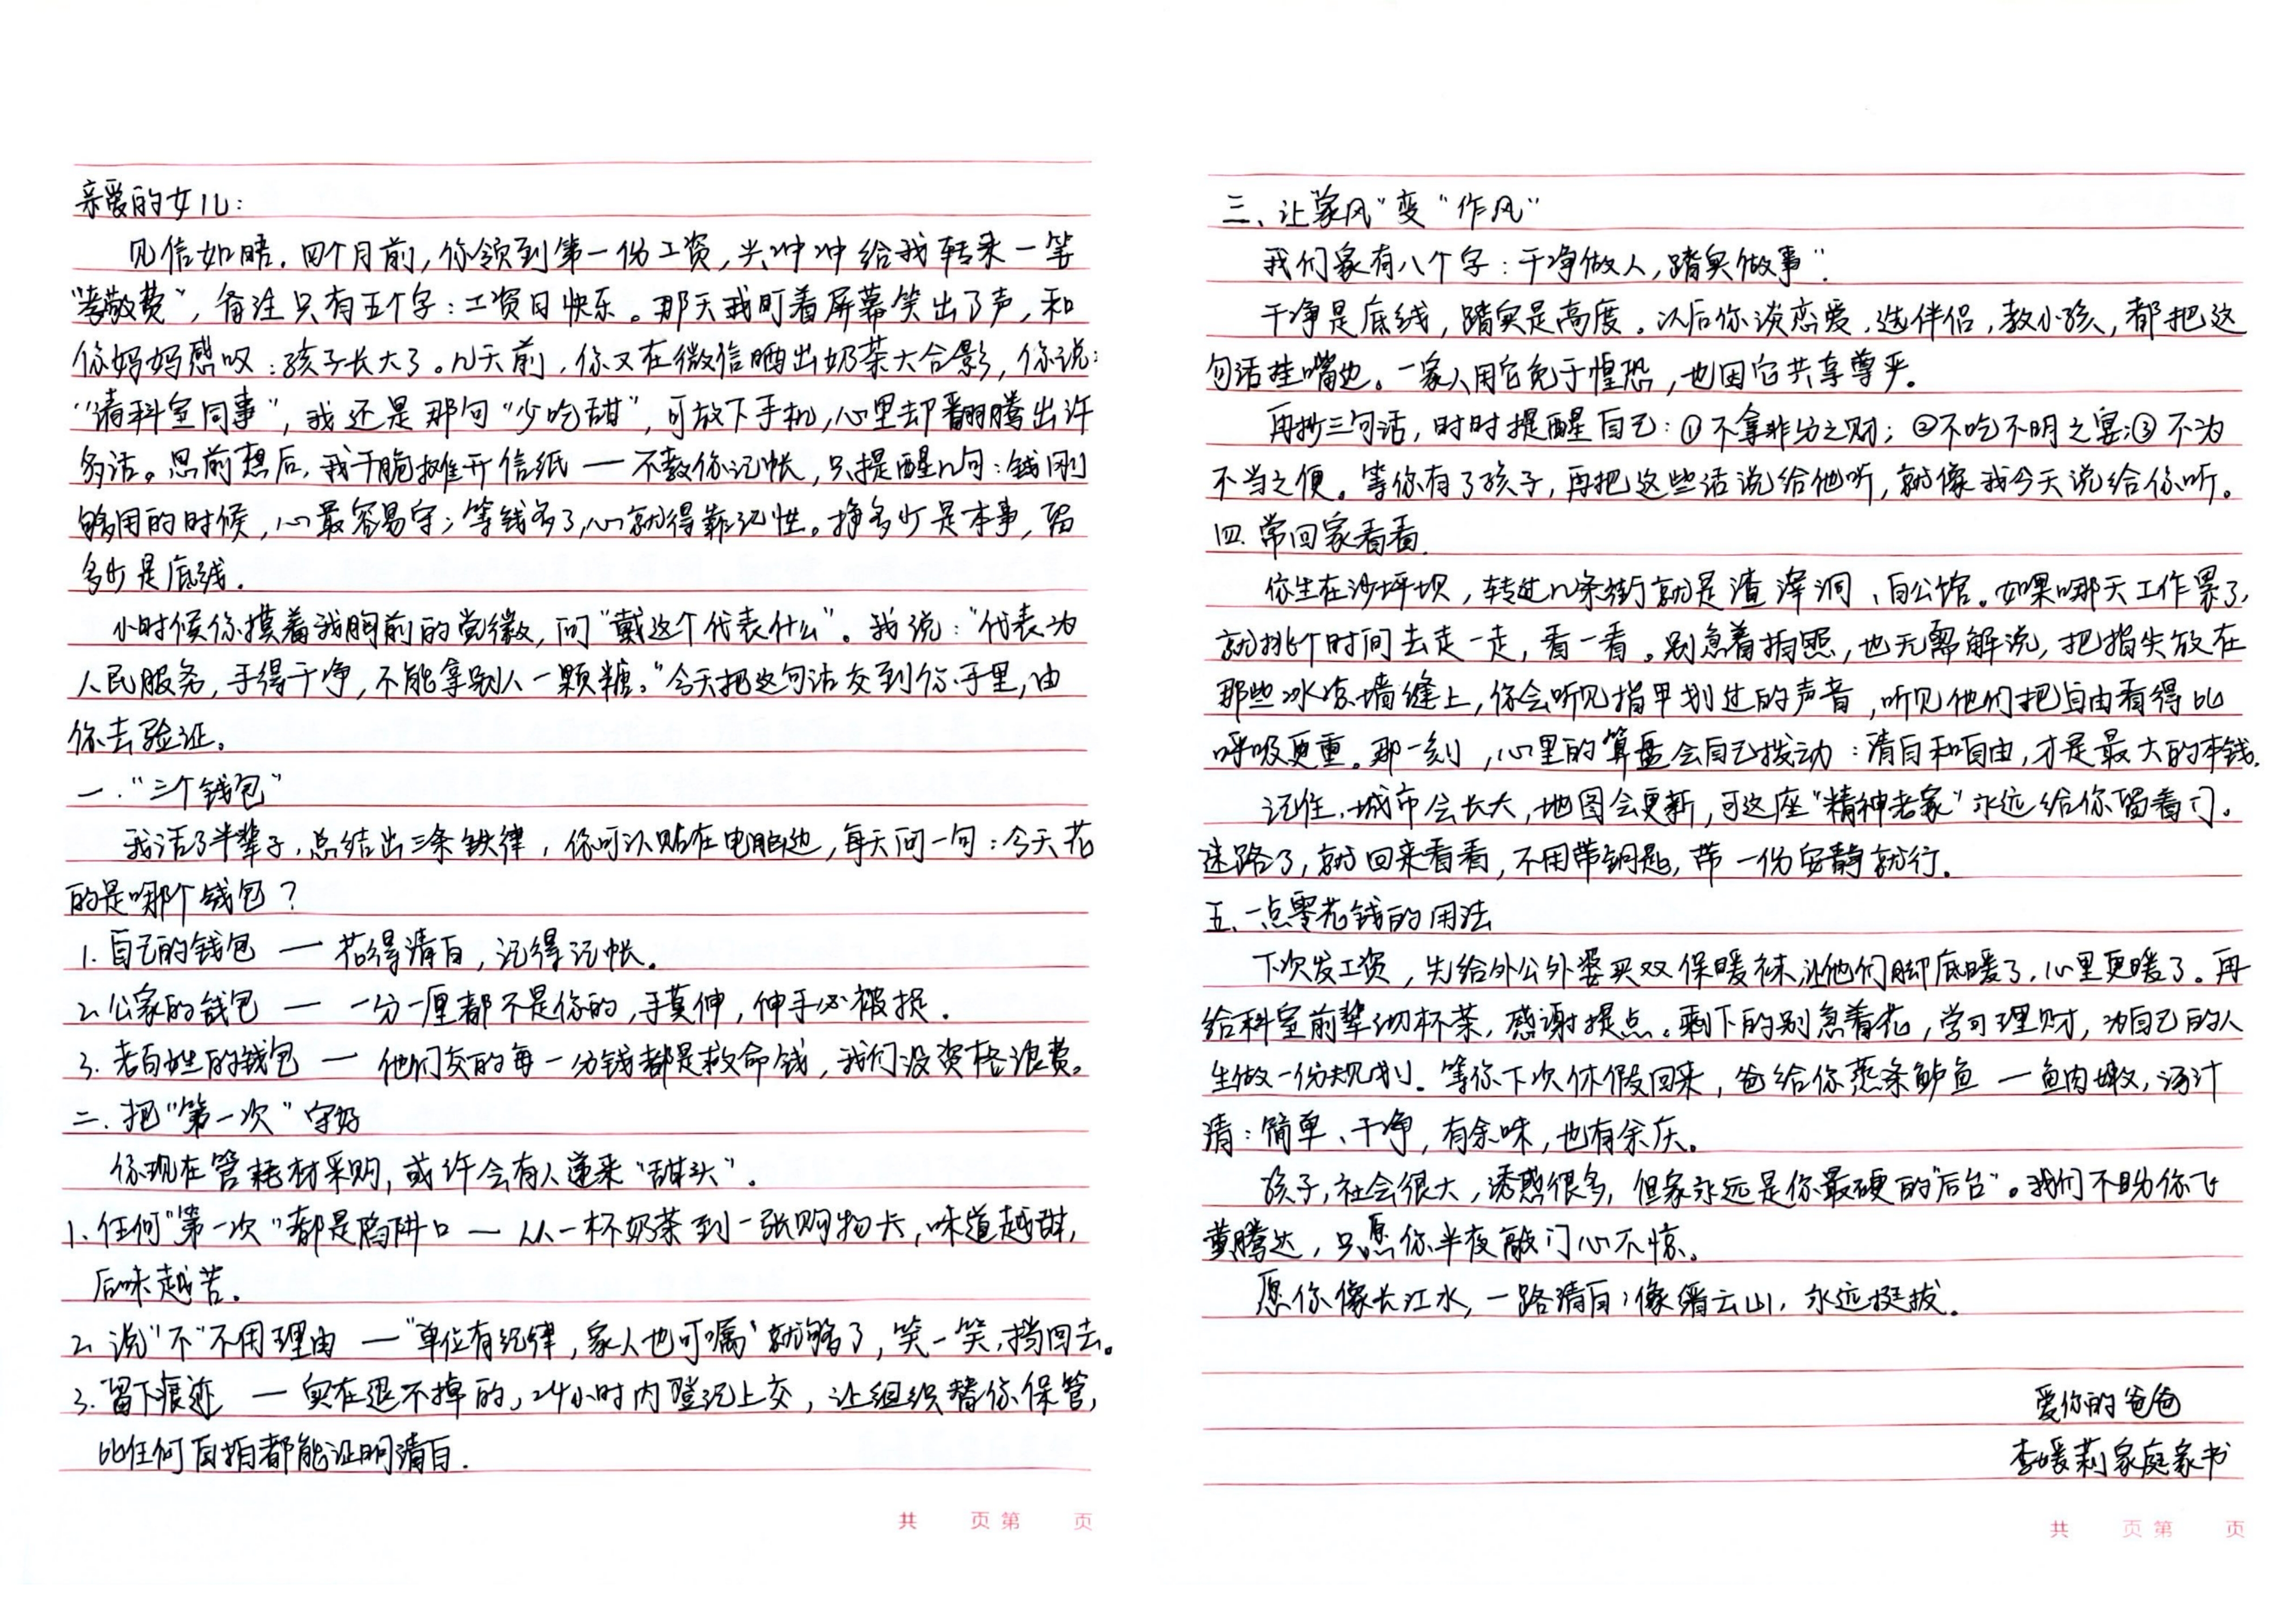 亲爱的女儿：
见信如晤。四个月前，你领到第一份工资，兴冲冲给我转来一笔
“孝敬费”，备注只有五个字：工资日快乐。那天我盯着屏幕笑出了声，和
你妈妈感叹：孩子长大了。几天前，你又在微信晒出奶茶大合影，你说：
“请科室同事”，我还是那句“少吃甜”，可放下手机，心里却翻腾出许
多话。思前想后，我干脆摊开信纸—不教你记帐，只提醒几句：钱刚
够用的时候，心最容易守；等钱多了，心就得靠记性。挣多少是本事，留
多少是底线。
小时候你摸着我胸前的党徽，问“戴这个代表什么”。我说：“代表为
人民服务，手得干净，不能拿别人一颗糖。”今天把这句话交到你手里，由
你去验证。
一.“三个钱包”
我活了半辈子，总结出三条铁律，你可以贴在电脑边，每天问一句：今天花
的是哪个钱包？
1.自己的钱包—花得清白，记得记帐。
2.公家的钱包—一分一厘都不是你的，手莫伸，伸手必被捉.
3.老百姓的钱包—他们交的每一分钱都是救命钱，我们没资格浪费。
二.把“第一次”守好
你现在管耗材采购，或许会有人递来“甜头”.
1.任何“第一次”都是陷阱口—从一杯奶茶到一张购物卡，味道越甜，
后味越苦。
2.说“不”不用理由—“单位有纪律，家人也叮嘱”就够了，笑一笑，挡回去。
3.留下痕迹—实在退不掉的，24小时内登记上交，让组织替你保管，
比任何自拍都能证明清白.
三、让家风“变“作风”
我们家有八个字：干净做人，踏实做事”.
干净是底线，踏实是高度。以后你谈恋爱，选伴侣，教小孩，都把这
句话挂嘴边。一家人用它免于惶恐，也因它共享尊严。
再抄三句话，时时提醒自己：①不拿非分之财；②不吃不明之宴；③不为
不当之便。等你有了孩子，再把这些话说给他听，就像我今天说给你听。
四.常回家看看.
你生在沙坪坝，转过几条街就是渣滓洞、白公馆。如果哪天工作累了，
就挑个时间去走一走，看一看。别急着拍照，也无需解说，把指尖放在
那些冰凉墙缝上，你会听见指甲划过的声音，听见他们把自由看得比
呼吸更重。那一刻，心里的算盘会自己拨动：清白和自由，才是最大的本钱.
记住，城市会长大，地图会更新，可这座“精神老家”永远给你留着门。
迷路了，就回来看看，不用带钥匙，带一份安静就行.
五.一点零花钱的用法
下次发工资，先给外公外婆买双保暖袜，让他们脚底暖了，心里更暖了。再
给科室前辈沏杯茶，感谢提点。剩下的别急着花，学习理财，为自己的人
生做一份规划. 等你下次休假回来，爸给你蒸条鲈鱼—鱼肉嫩，汤汁
清：简单、干净，有余味，也有余庆。
孩子，社会很大，诱惑很多，但家永远是你最硬的“后台”。我们不盼你飞
黄腾达，只愿你半夜敲门心不惊。
愿你像长江水，一路清白；像缙云山，永远挺拔.
爱你的爸爸
李媛莉家庭家书
共 页第 页
共 页第 页